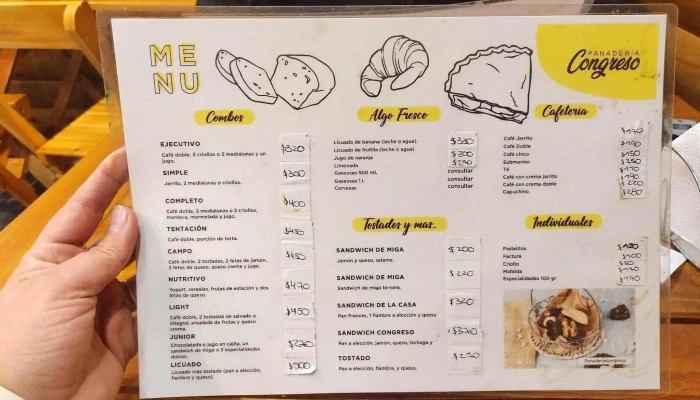 ME
NU
PANADERIA
Congreso
Combos
EJECUTIVO $320
Café doble, 3 criollos o 2 medialunas y un
jugo.
SIMPLE $300
Jarrito, 2 medialunas o criollos.
COMPLETO $400
Café doble, 2 medialunas o 2 criollos,
manteca, mermelada y jugo.
TENTACIÓN $450
Café doble, porción de torta.
CAMPO $450
Café doble, 2 tostadas, 2 fetas de jamón,
2 fetas de queso, queso crema y jugo.
NUTRITIVO $470
Yogurt, cereales, frutas de estación y dos
fetas de queso.
LIGHT $450
Café doble, 2 tostadas de salvado o
integral, ensalada de frutas y queso
crema.
JUNIOR
Chocolatada o jugo en cajita, un
sandwich de miga o 3 especialidades
dulces.
LICUADO $500
Licuado más tostado (pan a elección,
fiambre y queso).
Algo Fresco
Licuado de banana (leche o agua)
Licuado de frutilla (leche o agua)
Jugo de naranja $300
Limonada
Gaseosas 500 ml. consultar
Gaseosas 1 l. consultar
Cervezas consultar
Tostados y mas..
SANDWICH DE MIGA $200
Jamón y queso, salame.
SANDWICH DE MIGA $220
Sandwich de miga ternera.
SANDWICH DE LA CASA $320
Pan Frances, 1 fiambre a elección y queso
SANDWICH CONGRESO $320
Pan a elección, jamón, queso, lechuga y
TOSTADO
Pan a elección, fiambre, y queso.
Cafetería
Café Jarrito $170
Café Doble $190
Café chico $150
Submarino $250
Té $170
Café con crema jarrito $190
Café con crema doble $220
Capuchino $280
Individuales
Pastelitos
Factura $100
Criollo $50
Mafalda $170
Especialidades 100 gr $170
Panaderiacongreso